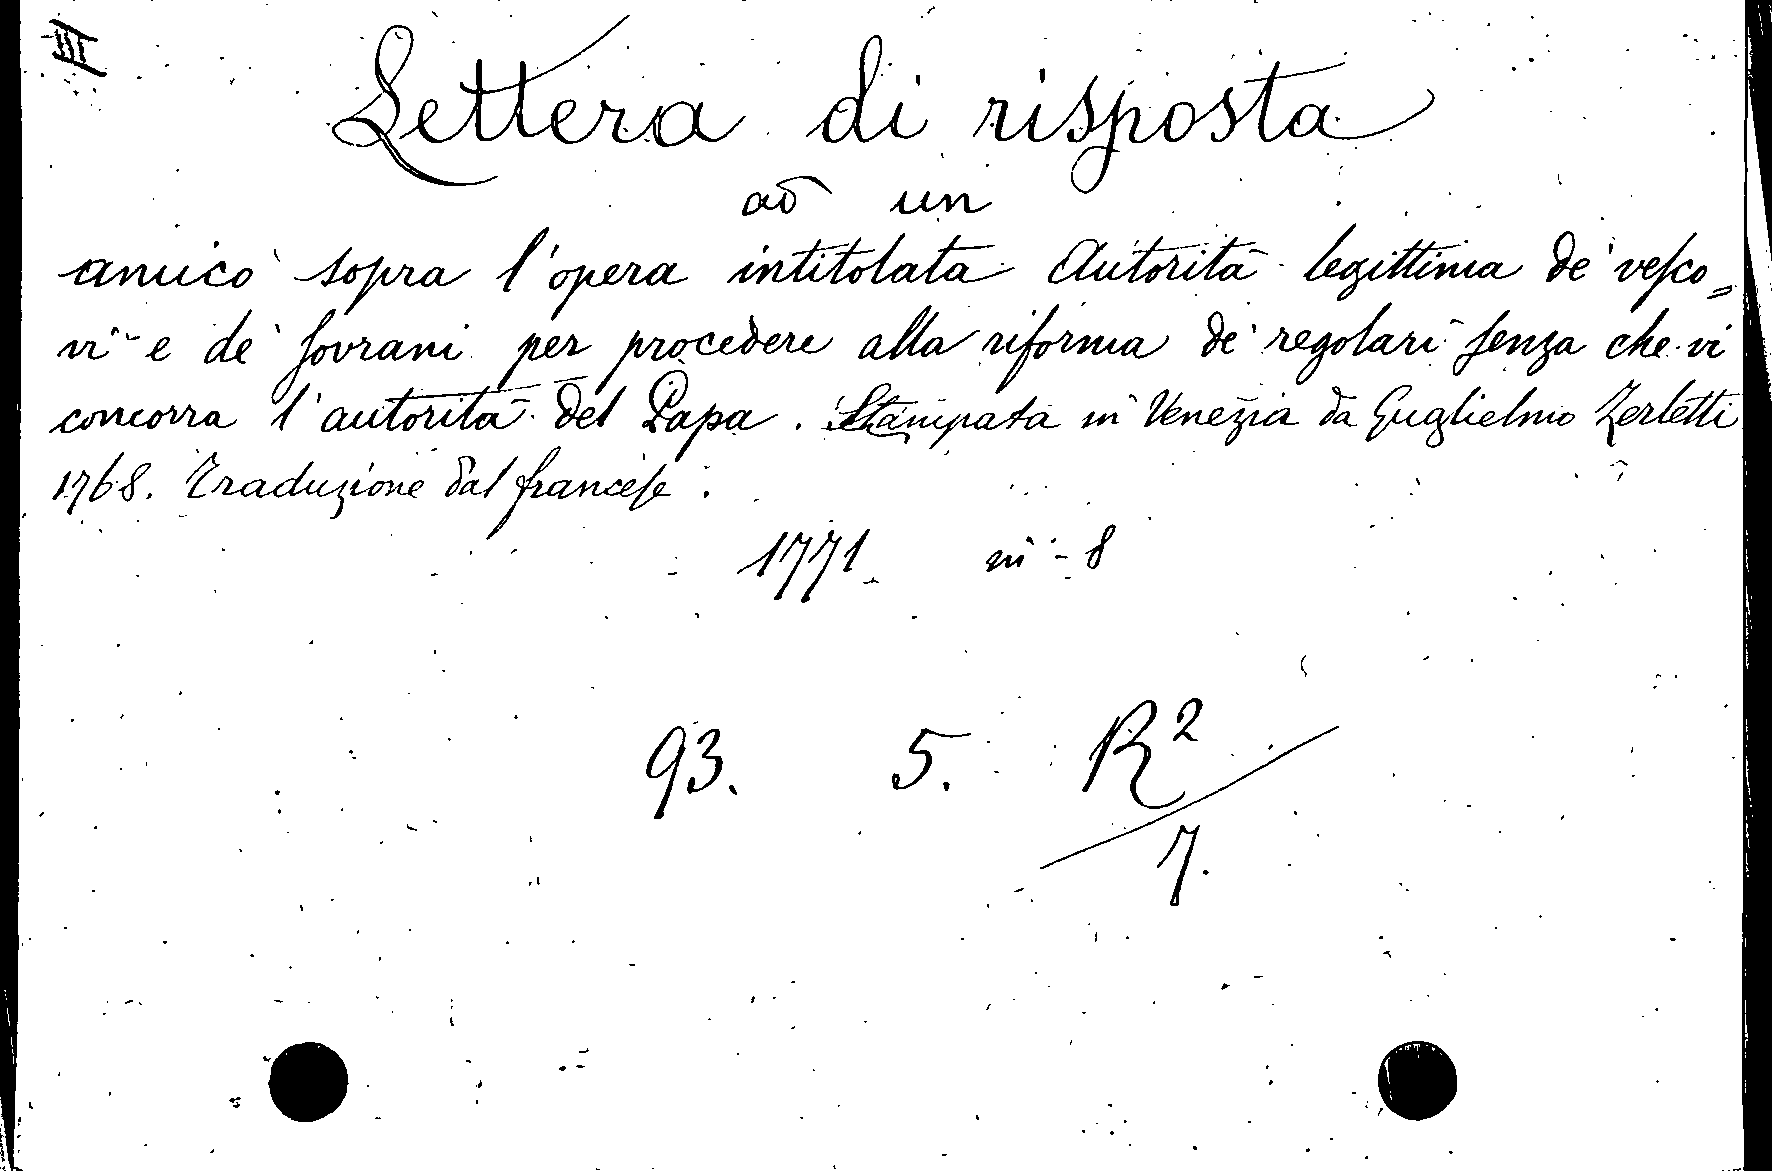 III
Lettera di risposta
ad un
amico sopra l'opera intitolata Autorità legittima de' vesco=
vi e de' sovrani per procedere alla riforma de' regolari senza che vi
concorra l'autorità del Papa. Stampata in Venezia da Guglielmo Zerletti
1768. Traduzione dal francese.
1771 in-8
93. 5. R²
7.